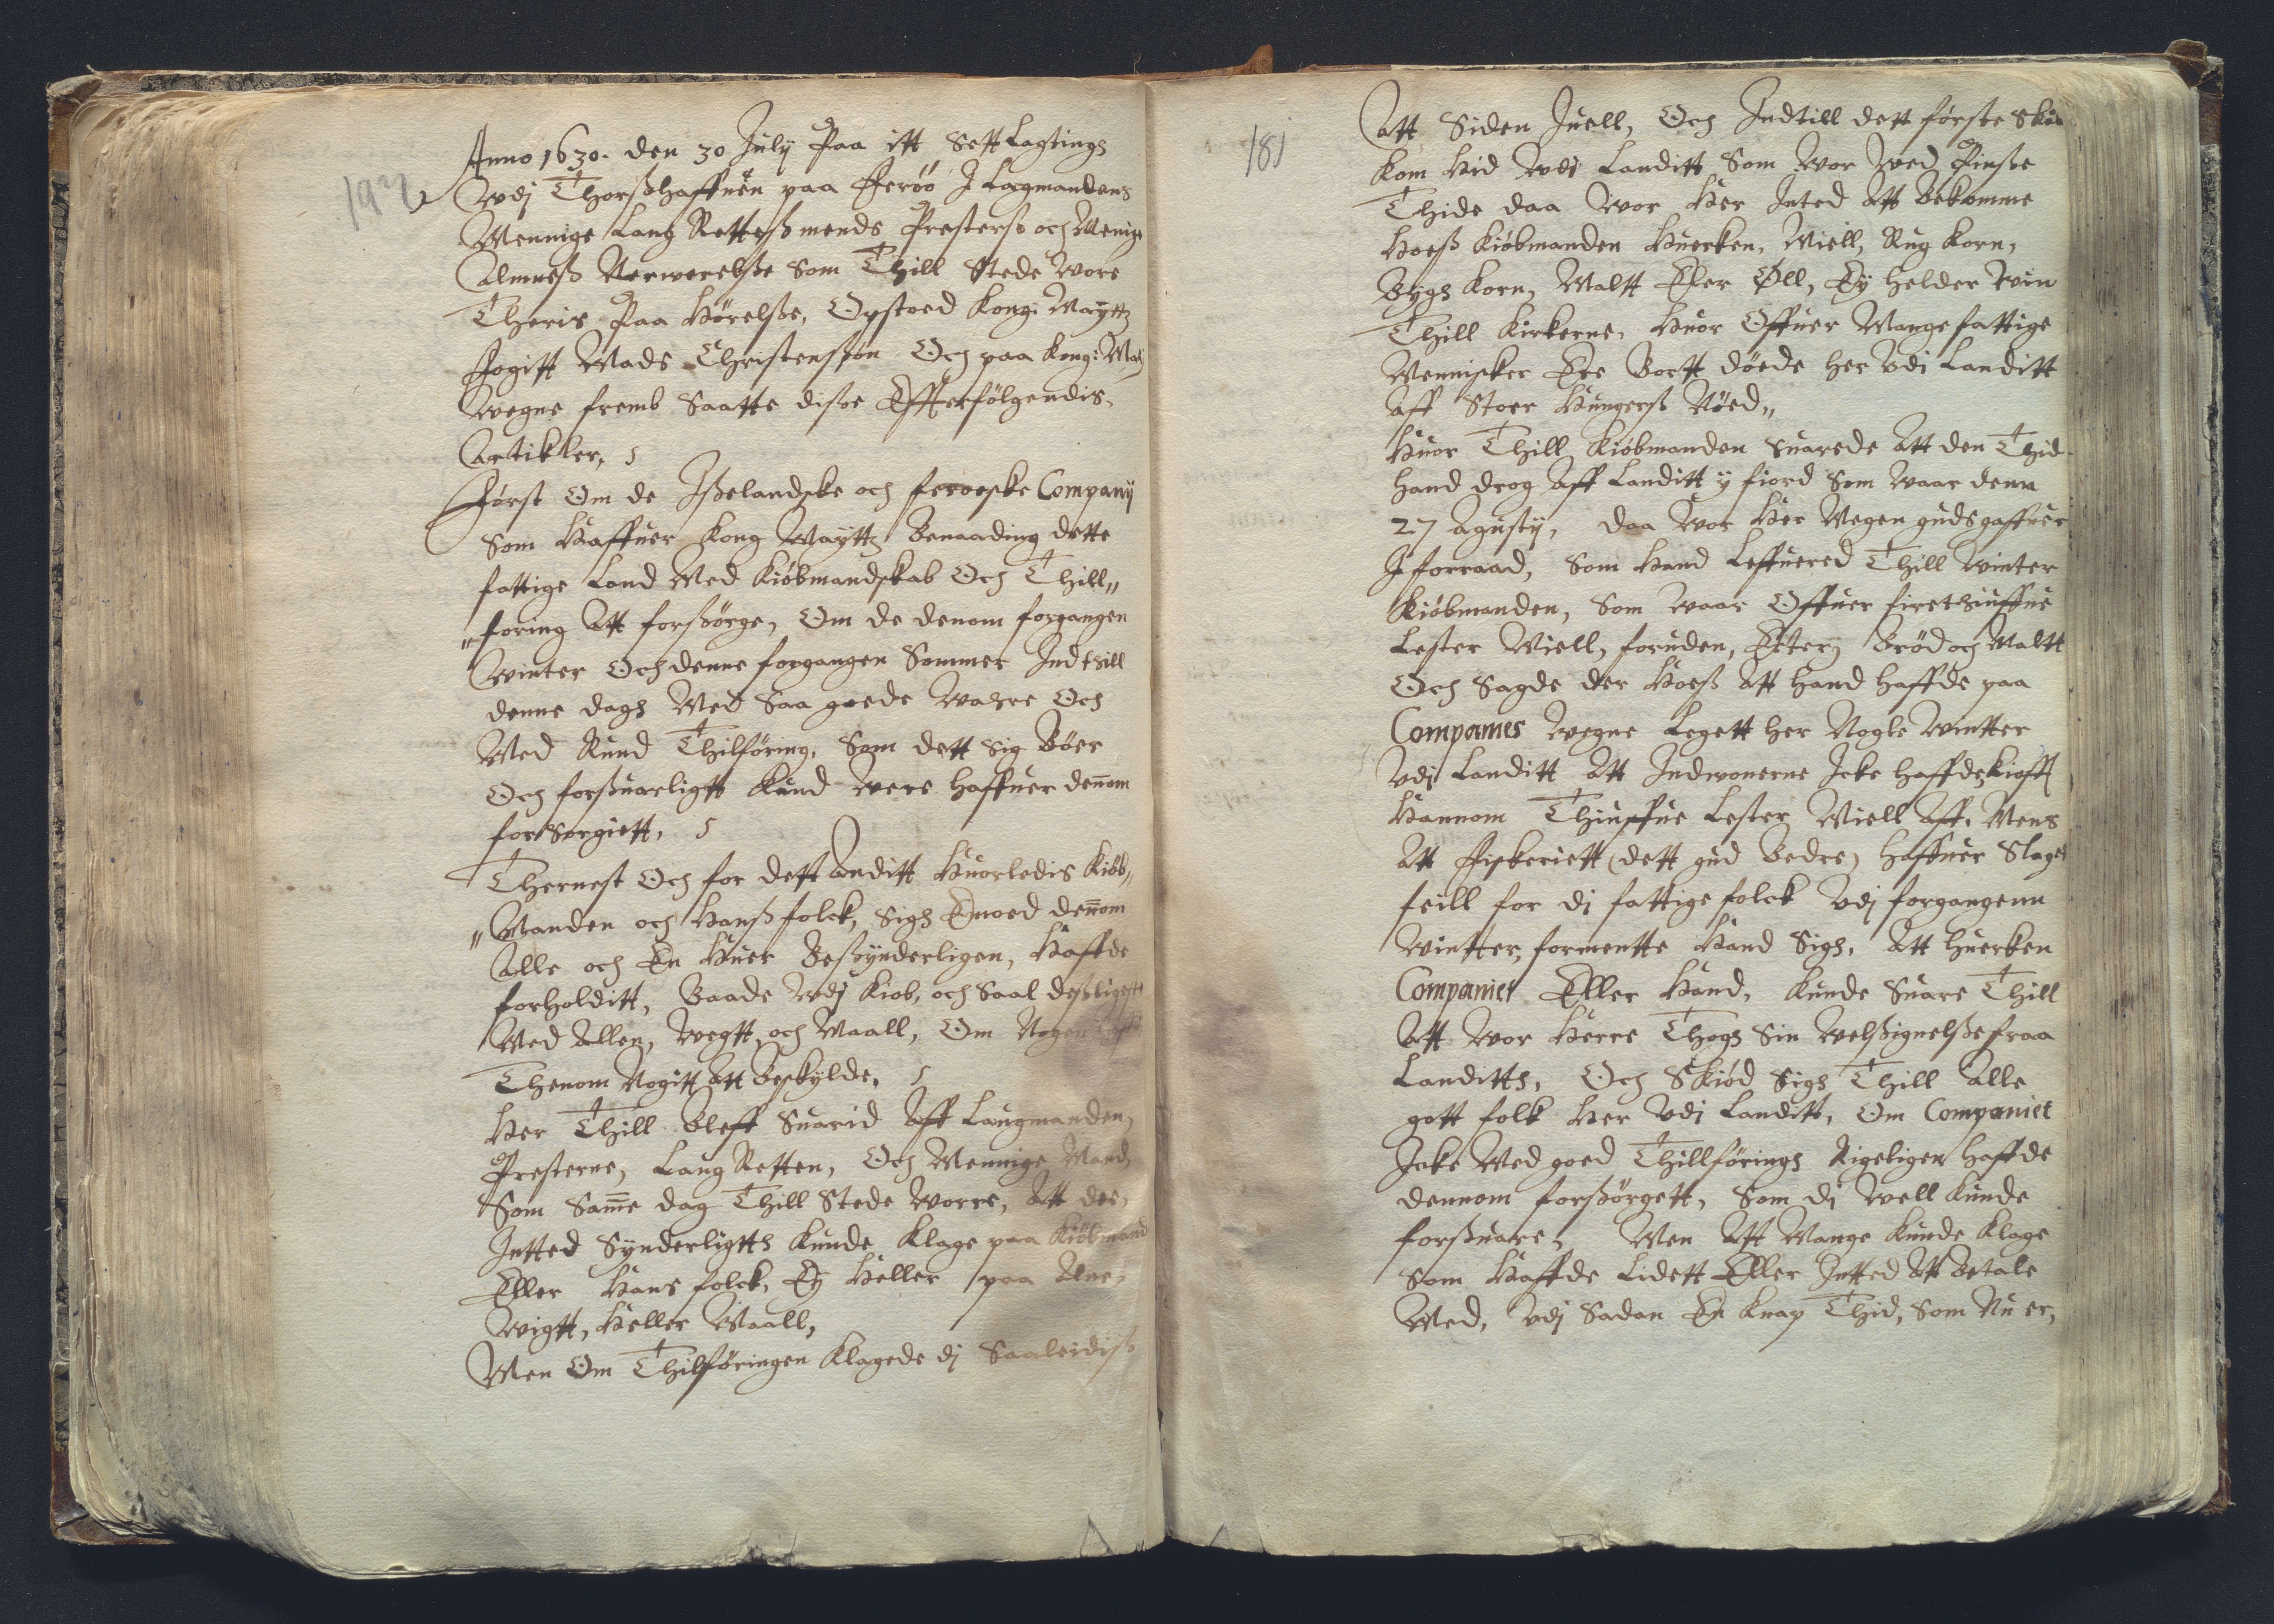 Anno 1630. den 30 July Paa itt Sett Lagtings
vdj Thorßhaffnen paa Ferøø J Lagmandens
Mennige Laug Rettesmends Presterß och Menige
Almueß Neruerelße Som Thill Stede vore
Theris Paa Hørelße, Opstoed Kong: Maytz
Fogitt Mads Christensøn Och paa Kong: May
vegne fremb Saatte disse Effterfølgendis
Artikler,
Først Om de Ißelandske och feroeske Company
Som Haffuer Kong Maytz Benaading dette
fattige Land Med Kiøbmandskab Och Thill„
„foring Att forßørge, Om de denom forgangen
Winter Och denne forgangen Sommer Indthill
denne dags Med Saa goede Wahre Och
Med Rund Thilføring, Som dett Sig Bøer
Och forßuarligtt Kund Were haffuer dennom
forßorgiett,
Thernest Och for dett Anditt Huorledis Kiøb„
„Manden och Hanß folck, Sigh Emoed dennom
Alle och En Huer Beßynderligen, Haffde
forholditt, Baade vdj Kiob, och Saal deßligest
Med Allen, Wegtt, och Maall, Om Nogen
Thenom Nogitt Att Beskylde,
Her Thill Bleff Suarid Aff Laugmanden,
Presterne, Laug Retten, Och Mennige Mand
Som Samme dag Thill Stede Worre, Att der
Intted Synderligtts Kunde Klage paa Kiøbmand
Eller Hans folck, Ey Heller paa Alne,
Wigtt, Heller Maall,
Men Om Thilføringen Klagede dj Saaleidiß
181
Att Siden Juell, Och Indtill dett første Skib
Kom Hid vdi Landitt Som Wor Wed Pinße
Thide daa Wor Her Inted Att Bekomme
Hoeß Kiøbmanden Huercken, Miell, Rug Korn,
Bygh Korn, Maltt Eler Øll, Ey helder Win
Thill Kirkerne, Huor Offuer Mange fattige
Mennisker Ere Bortt døede her vdi Landitt
Aff Stoer Hungerß Nøed„
Huor Thill Kiøbmanden Suarede Att den Thid
Hand drog Aff Landitt y fiord Som Waar denn
27 Agusty, daa Wor Her Megen gudsgaffuer
J forraad, Som Hand Leffuered Thill Winter
Kiøbmanden, Som Waar Offuer firethiuffue
Lester Miell, foruden, Erter, Brød och Maltt
Och Sagde der Hoeß Att Hand Haffde paa
Companies Wegne Legett her Nogle Wintter
vdj Landitt Att Indwonerne Icke Haffde Kiøfft
Hannom Thiuffue Lester Miell Aff, Mens
Att Fiskeriett (dett gud Bedre) haffuer Slaget
feill for dj fattige folck vdj forgangenn
Wintter, formentte Hand Sigh, Att Huerken
Companiet Eller Hand, Kunde Suare Thill
Att Wor Herre Thogh Sin Welßignelße fraa
Landitts, Och Skiød Sigh Thill Alle
gott folk Her vdi Landitt, Om Companiet
Icke Med goed Thillføringh Rigeligen haffde
dennom forßørgett, Som dj Well Kunde
forßuare, Men Att Mange Kunde Klage
Som Haffde Lidett Eller Intted Att Betale
Med, vdj Sadan En Knap Thid, Som Nu er,